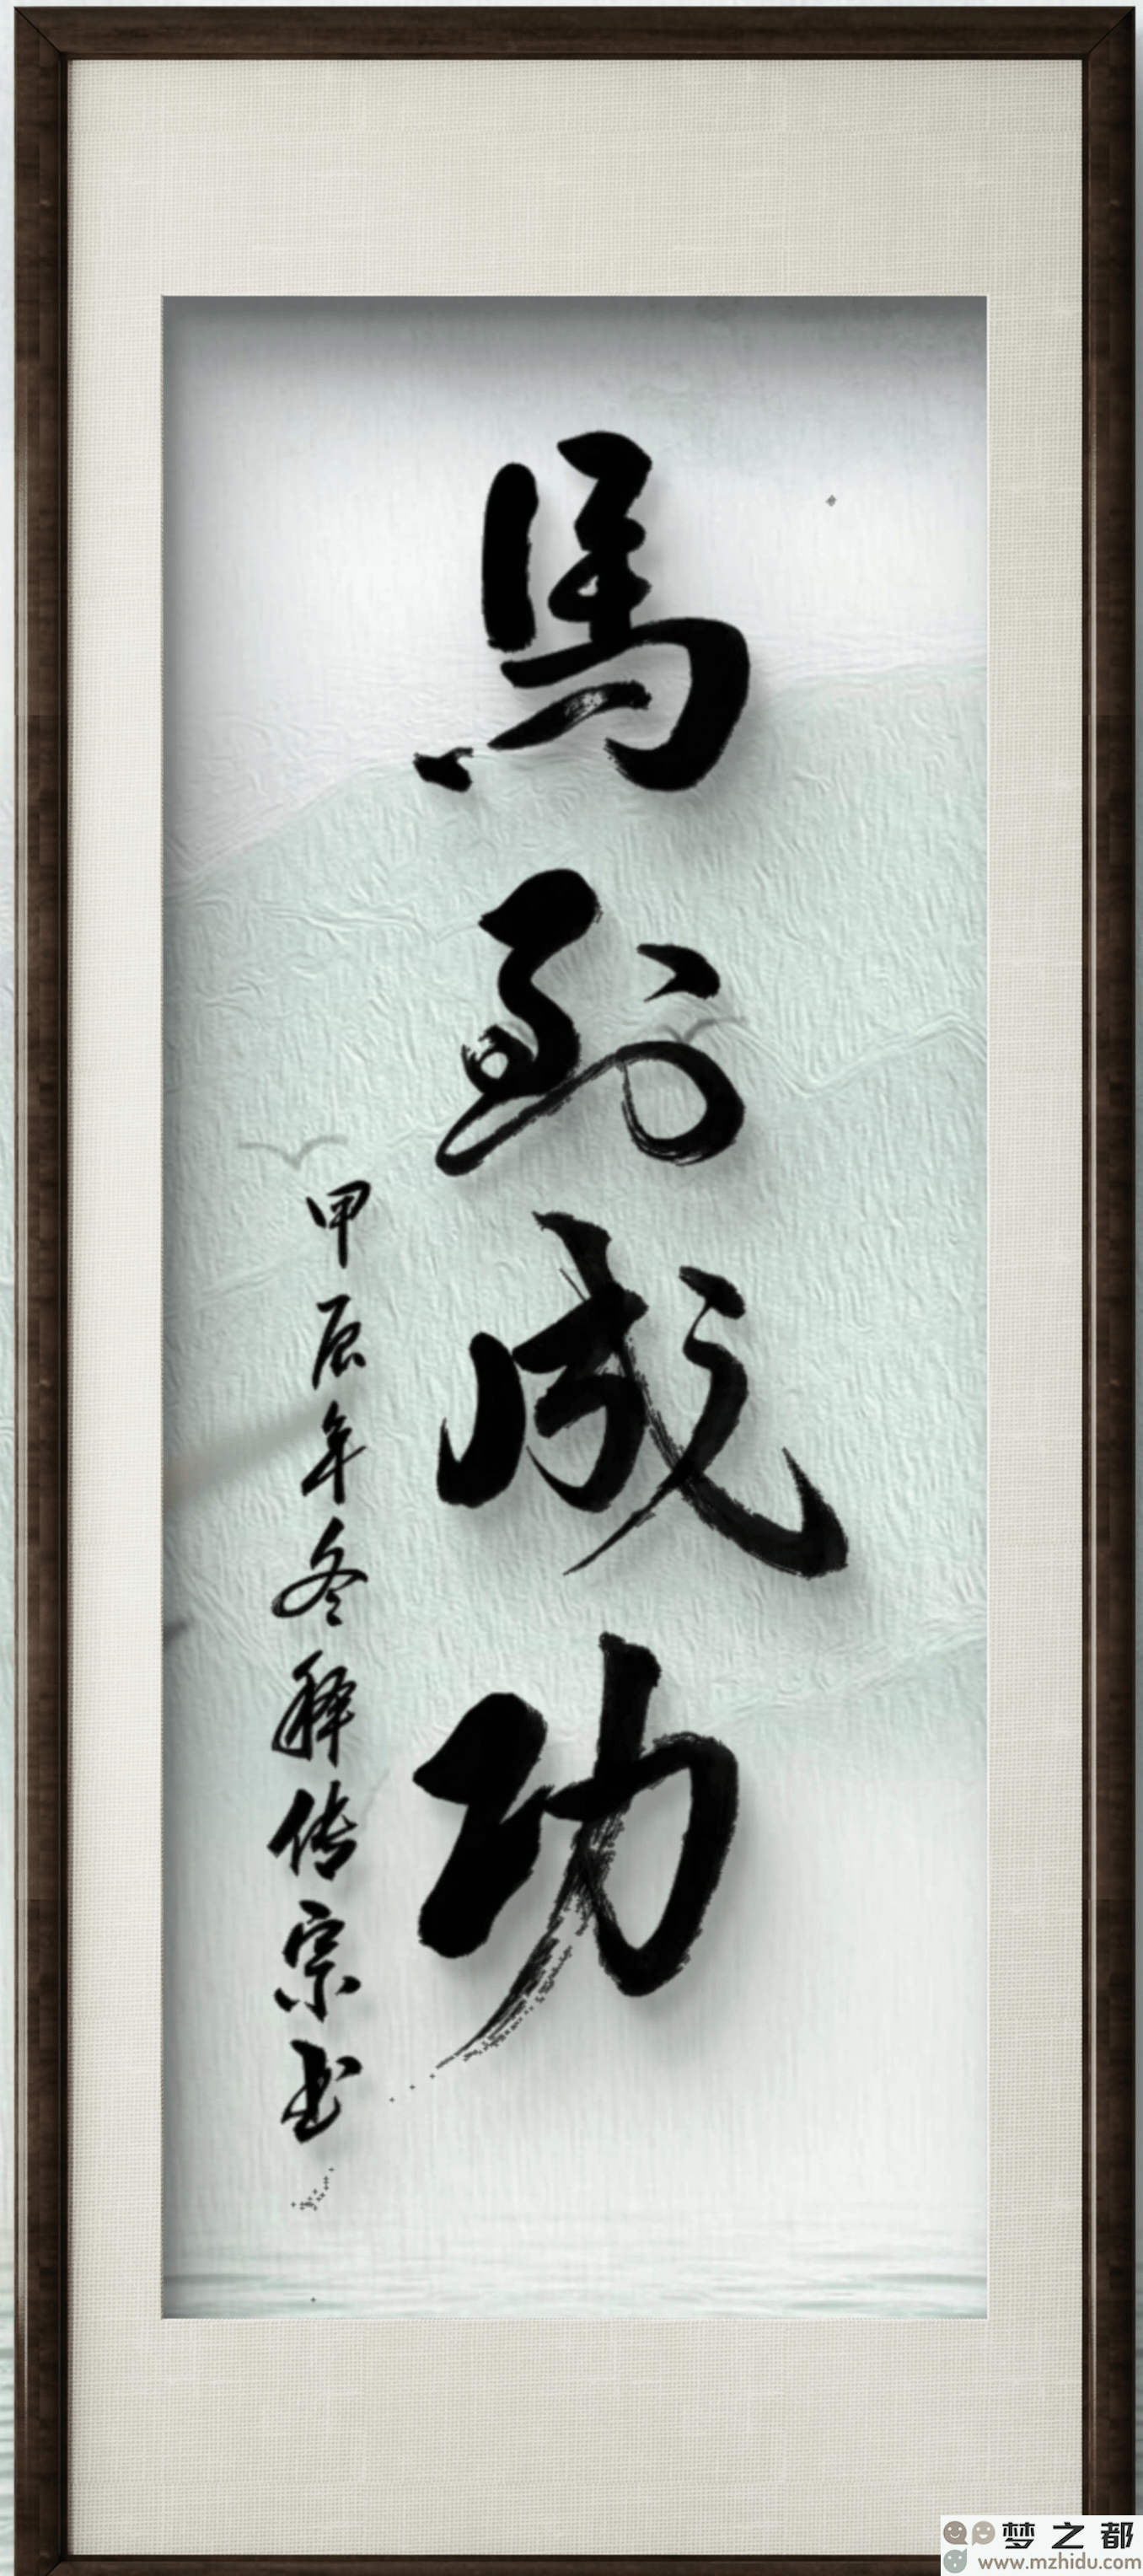 馬到成功
甲辰年冬释传宗书
梦之都
www.mzhidu.com